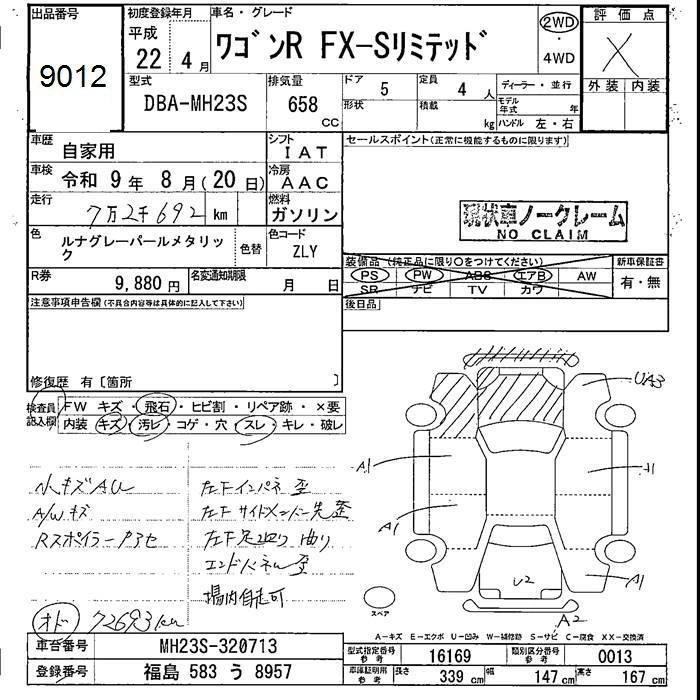 出品番号
9012
初度登録年月
平成
22 4 月
車名・グレード
ワゴンR FX-Sリミテッド
2WD
4WD
評価点
X
外装 内装
型式
DBA-MH23S
排気量
658
CC
ドア 5
形状
定員 4 人
積載 kg
ディーラー・並行
モデル年式 年
ハンドル 左・右
車歴 自家用
シフト IAT
車検 令和 9年 8月(20日)
冷房 AAC
走行 7万2千692 km
燃料 ガソリン
色 ルナグレーパールメタリック
色替
色コード ZLY
R券 9,880円
名変通知期限 月 日
セールスポイント(正常に機能するものに限ります)
現状車ノークレーム
NO CLAIM
装備品(純正品に限り○をつけてください)
PS PW ABS エアB AW
SR ナビ TV カワ
新車保証書
有・無
後日品
注意事項申告欄(不具合内容等は具体的に記入して下さい)
修復歴 有〔箇所 〕
検査員記入欄
FW キズ・飛石・ヒビ割・リペア跡・×要
内装 キズ・汚レ・コゲ・穴・スレ・キレ・破レ
小キズAU
A/Wキズ
Rスポイラー
左Fインパネ歪
左Fサイドメンバー先歪
左F足廻り曲り
エンドパネル歪
場内自走可
オド 72693km
UA3
A1
A1
A1
A1
U2
A2
スペア
A-キズ E-エクボ U-凹み W-補修跡 S-サビ C-腐食 XX-交換済
車台番号 MH23S-320713
登録番号 福島 583 う 8957
型式指定番号 参考 16169
類別区分番号 参考 0013
車庫証明用 参考 長さ 339 cm 幅 147 cm 高さ 167 cm